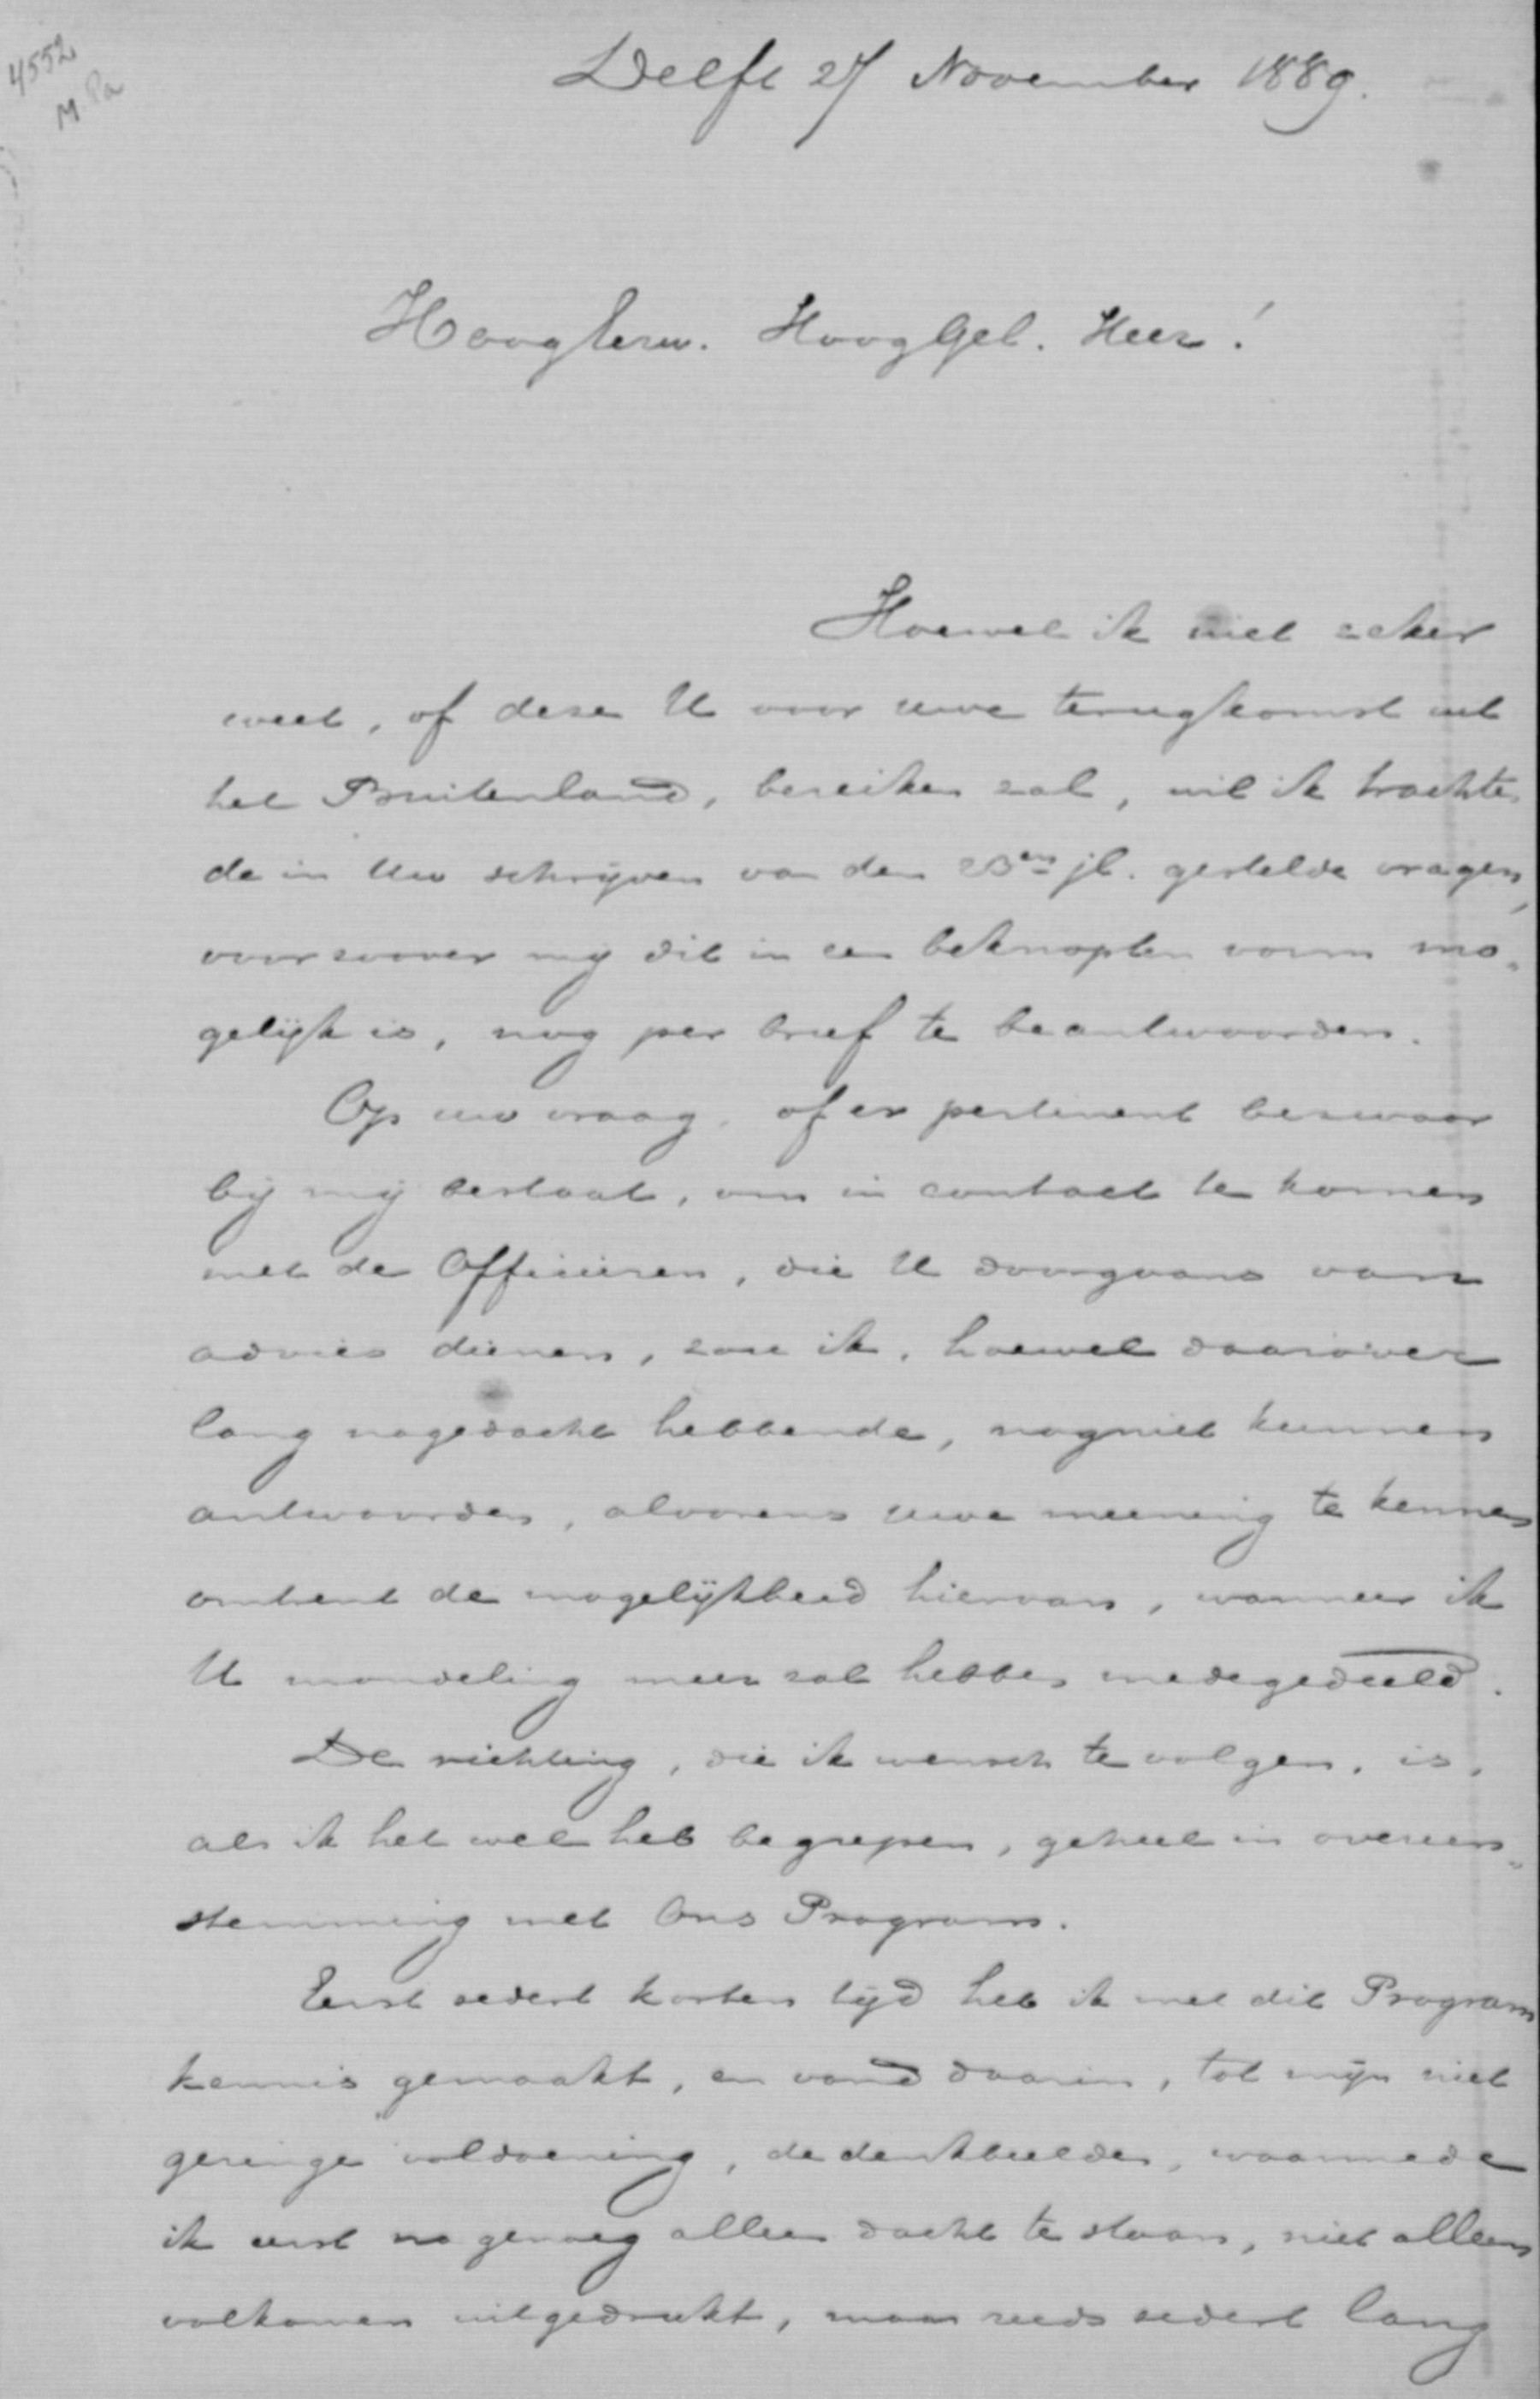 4552
M Pa
Delft 27 November 1889.
HoogEerw. HoogGel. Heer!
Hoewel ik niet zeker
weet, of deze U voor uwe terugkomst uit
het Buitenland, bereiken zal, wil ik trachten
de in Uw schrijven van den 23en jl. gestelde vragen,
voor zoover mij dit in een beknopten vorm mo„
gelijk is, nog per brief te beantwoorden.
Op uw vraag, of er pertinent bezwaar
bij mij bestaat, om in contact te komen
met de Officieren, die U doorgaans van
advies dienen, zou ik, hoewel daarover
lang nagedacht hebbende, nog niet kunnen
antwoorden, alvorens uwe meening te kennen
omtrent de mogelijkheid hiervan, wanneer ik
U mondeling meer zal hebben medegedeeld.
De richting, die ik wensch te volgen, is,
als ik het wel heb begrepen, geheel in overeen„
stemming met Ons Program.
Eerst sedert korten tijd heb ik met dit Program
kennis gemaakt, en vond daarin, tot mijn niet
geringe voldoening, de denkbeelden, waarmede
ik eerst na genoeg alleen dacht te staan, niet alleen
volkomen uitgedrukt, maar reeds sedert lang